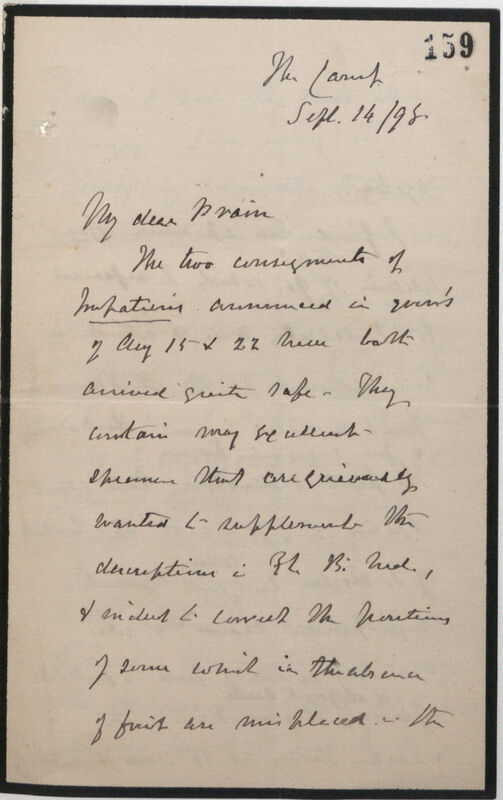 159
The Camp
Sept. 14/98
My dear Prain
The two consignments of
Impatiens announced in yours
of Aug 15 & 22 have both
arrived quite safe - They
contain many excellent
specimens that are grievously
wanted to supplement the
descriptions in Fl. B. Inda,
& indeed to correct the positions
of some which in the absence
of fruit are misplaced in the